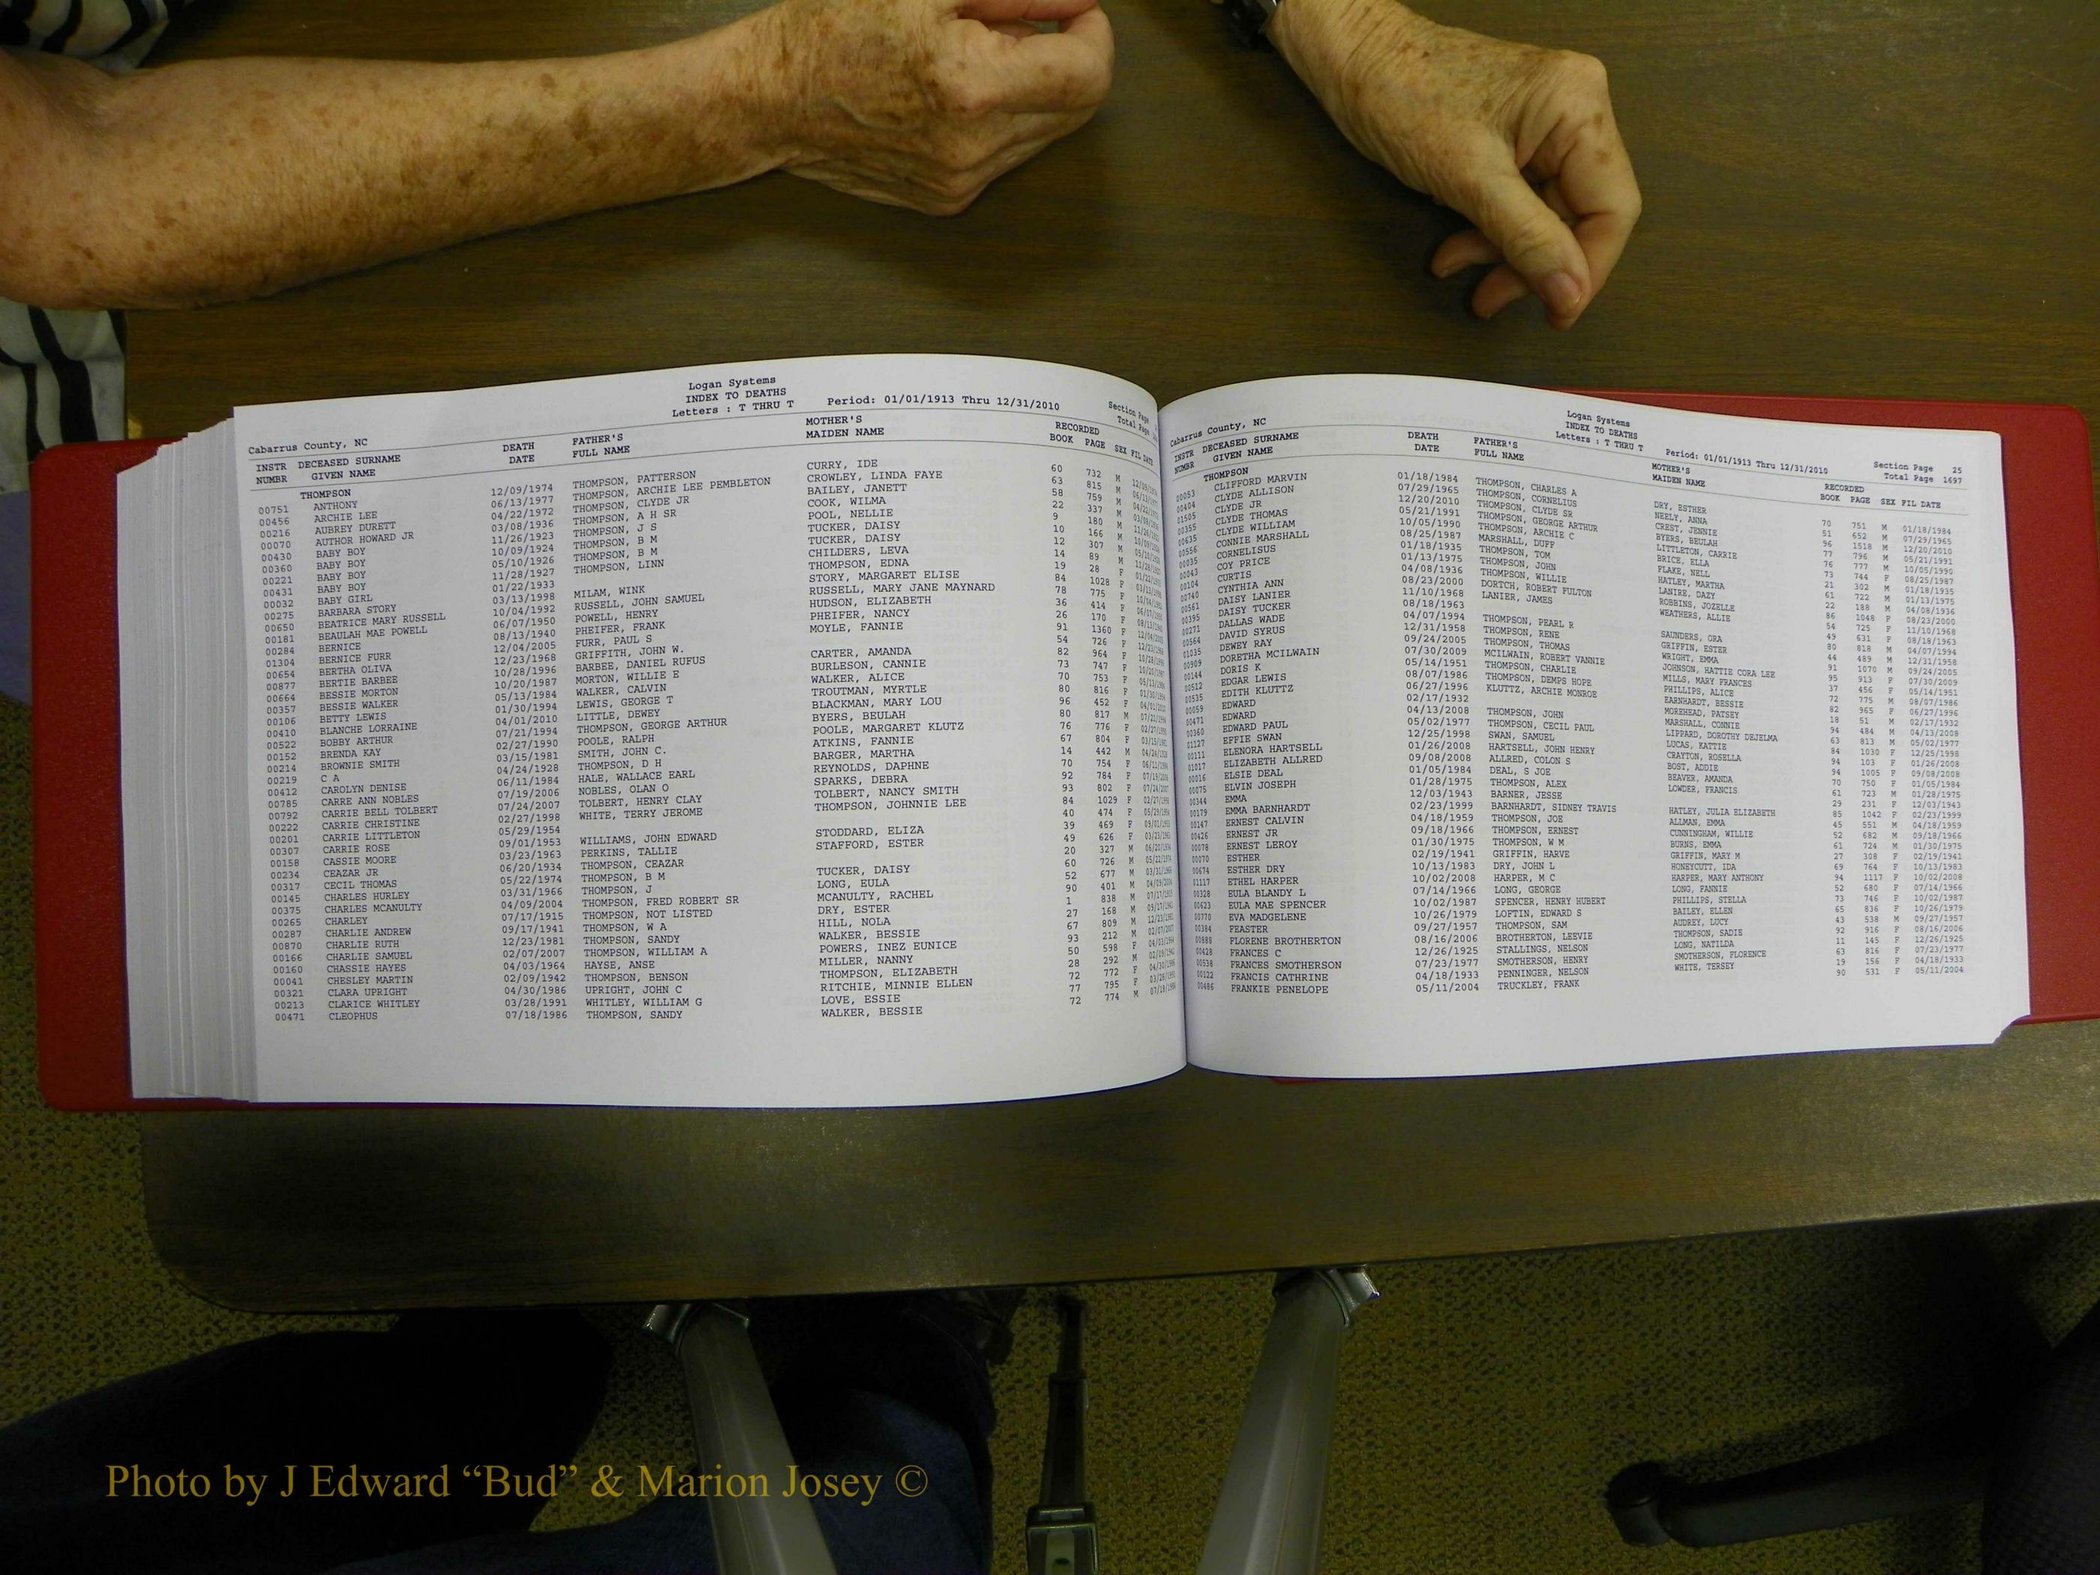 Logan Systems
INDEX TO DEATHS
Letters : T THRU T Period: 01/01/1913 Thru 12/31/2010 Section Page
Cabarrus County, NC Total Page
INSTR DECEASED SURNAME DEATH FATHER'S MOTHER'S RECORDED
NUMBR GIVEN NAME DATE FULL NAME MAIDEN NAME BOOK PAGE SEX FIL DATE
THOMPSON
00751 ANTHONY 12/09/1974 THOMPSON, PATTERSON CURRY, IDE 60 732 M
00456 ARCHIE LEE 06/13/1977 THOMPSON, ARCHIE LEE PEMBLETON CROWLEY, LINDA FAYE 63 815 M
00216 AUBREY DURETT 04/22/1972 THOMPSON, CLYDE JR BAILEY, JANETT 58 759 M
00070 AUTHOR HOWARD JR 03/08/1936 THOMPSON, A H SR COOK, WILMA 22 337 M
00430 BABY BOY 11/26/1923 THOMPSON, J S POOL, NELLIE 9 180 M
00360 BABY BOY 10/09/1924 THOMPSON, B M TUCKER, DAISY 10 166 M
00221 BABY BOY 05/10/1926 THOMPSON, B M TUCKER, DAISY 12 307 M
00431 BABY BOY 11/28/1927 THOMPSON, LINN CHILDERS, LEVA 14 89 M
00032 BABY GIRL 01/22/1933 THOMPSON, EDNA 19 28 F
00275 BARBARA STORY 03/13/1998 MILAM, WINK STORY, MARGARET ELISE 84 1028 F
00650 BEATRICE MARY RUSSELL 10/04/1992 RUSSELL, JOHN SAMUEL RUSSELL, MARY JANE MAYNARD 78 775 F
00181 BEAULAH MAE POWELL 06/07/1950 POWELL, HENRY HUDSON, ELIZABETH 36 414 F
00284 BERNICE 08/13/1940 PHEIFER, FRANK PHEIFER, NANCY 26 170 F
01304 BERNICE FURR 12/04/2005 FURR, PAUL S MOYLE, FANNIE 91 1360 F
00654 BERTHA OLIVA 12/23/1968 GRIFFITH, JOHN W. 54 726 F
00877 BERTIE BARBEE 10/28/1996 BARBEE, DANIEL RUFUS CARTER, AMANDA 82 964 F
00664 BESSIE MORTON 10/20/1987 MORTON, WILLIE E BURLESON, CANNIE 73 747 F
00357 BESSIE WALKER 05/13/1984 WALKER, CALVIN WALKER, ALICE 70 753 F
00106 BETTY LEWIS 01/30/1994 LEWIS, GEORGE T TROUTMAN, MYRTLE 80 816 F
00410 BLANCHE LORRAINE 04/01/2010 LITTLE, DEWEY BLACKMAN, MARY LOU 96 452 F
00522 BOBBY ARTHUR 07/21/1994 THOMPSON, GEORGE ARTHUR BYERS, BEULAH 80 817 M
00152 BRENDA KAY 02/27/1990 POOLE, RALPH POOLE, MARGARET KLUTZ 76 776 F
00214 BROWNIE SMITH 03/15/1981 SMITH, JOHN C. ATKINS, FANNIE 67 804 F
00219 C A 04/24/1928 THOMPSON, D H BARGER, MARTHA 14 442 M
00412 CAROLYN DENISE 06/11/1984 HALE, WALLACE EARL REYNOLDS, DAPHNE 70 754 F
00785 CARRE ANN NOBLES 07/19/2006 NOBLES, OLAN O SPARKS, DEBRA 92 784 F
00792 CARRIE BELL TOLBERT 07/24/2007 TOLBERT, HENRY CLAY TOLBERT, NANCY SMITH 93 802 F
00222 CARRIE CHRISTINE 02/27/1998 WHITE, TERRY JEROME THOMPSON, JOHNNIE LEE 84 1029 F
00201 CARRIE LITTLETON 05/29/1954 40 474 F
00307 CARRIE ROSE 09/01/1953 WILLIAMS, JOHN EDWARD STODDARD, ELIZA 39 469 F
00158 CASSIE MOORE 03/23/1963 PERKINS, TALLIE STAFFORD, ESTER 49 626 F
00234 CEAZAR JR 06/20/1934 THOMPSON, CEAZAR 20 327 M
00317 CECIL THOMAS 05/22/1974 THOMPSON, B M TUCKER, DAISY 60 726 M
00145 CHARLES HURLEY 03/31/1966 THOMPSON, J LONG, EULA 52 677 M
00375 CHARLES MCANULTY 04/09/2004 THOMPSON, FRED ROBERT SR MCANULTY, RACHEL 90 401 M
00265 CHARLEY 07/17/1915 THOMPSON, NOT LISTED DRY, ESTER 1 838 M
00287 CHARLIE ANDREW 09/17/1941 THOMPSON, W A HILL, NOLA 27 168 M
00870 CHARLIE RUTH 12/23/1981 THOMPSON, SANDY WALKER, BESSIE 67 809 M
00166 CHARLIE SAMUEL 02/07/2007 THOMPSON, WILLIAM A POWERS, INEZ EUNICE 93 212 M
00160 CHASSIE HAYES 04/03/1964 HAYSE, ANSE MILLER, NANNY 50 598 F
00041 CHESLEY MARTIN 02/09/1942 THOMPSON, BENSON THOMPSON, ELIZABETH 28 292 M
00321 CLARA UPRIGHT 04/30/1986 UPRIGHT, JOHN C RITCHIE, MINNIE ELLEN 72 772 F
00213 CLARICE WHITLEY 03/28/1991 WHITLEY, WILLIAM G LOVE, ESSIE 77 795 F
00471 CLEOPHUS 07/18/1986 THOMPSON, SANDY WALKER, BESSIE 72 774 M
Logan Systems
INDEX TO DEATHS
Letters : T THRU T Period: 01/01/1913 Thru 12/31/2010 Section Page 25
Cabarrus County, NC Total Page 1697
INSTR DECEASED SURNAME DEATH FATHER'S MOTHER'S RECORDED
NUMBR GIVEN NAME DATE FULL NAME MAIDEN NAME BOOK PAGE SEX FIL DATE
THOMPSON
00053 CLIFFORD MARVIN 01/18/1984 THOMPSON, CHARLES A DRY, ESTHER 70 751 M 01/18/1984
00404 CLYDE ALLISON 07/29/1965 THOMPSON, CORNELIUS NEELY, ANNA 51 652 M 07/29/1965
01505 CLYDE JR 12/20/2010 THOMPSON, CLYDE SR CREST, JENNIE 96 1518 M 12/20/2010
00355 CLYDE THOMAS 05/21/1991 THOMPSON, GEORGE ARTHUR BYERS, BEULAH 77 796 M 05/21/1991
00635 CLYDE WILLIAM 10/05/1990 THOMPSON, ARCHIE C LITTLETON, CARRIE 76 777 M 10/05/1990
00556 CONNIE MARSHALL 08/25/1987 MARSHALL, DUFF BRICE, ELLA 73 744 F 08/25/1987
00035 CORNELISUS 01/18/1935 THOMPSON, TOM FLAKE, NELL 21 302 M 01/18/1935
00043 COY PRICE 01/13/1975 THOMPSON, JOHN HATLEY, MARTHA 61 722 M 01/13/1975
00104 CURTIS 04/08/1936 THOMPSON, WILLIE LANIRE, DAZY 22 188 M 04/08/1936
00740 CYNTHIA ANN 08/23/2000 DORTCH, ROBERT FULTON ROBBINS, JOZELLE 86 1048 F 08/23/2000
00561 DAISY LANIER 11/10/1968 LANIER, JAMES WEATHERS, ALLIE 54 725 F 11/10/1968
00395 DAISY TUCKER 08/18/1963 49 631 F 08/18/1963
00271 DALLAS WADE 04/07/1994 THOMPSON, PEARL R SAUNDERS, ORA 80 818 M 04/07/1994
00564 DAVID SYRUS 12/31/1958 THOMPSON, RENE GRIFFIN, ESTER 44 489 M 12/31/1958
01035 DEWEY RAY 09/24/2005 THOMPSON, THOMAS WRIGHT, EMMA 91 1070 M 09/24/2005
00909 DORETHA MCILWAIN 07/30/2009 MCILWAIN, ROBERT VANNIE JOHNSON, HATTIE CORA LEE 95 913 F 07/30/2009
00144 DORIS K 05/14/1951 THOMPSON, CHARLIE MILLS, MARY FRANCES 37 456 F 05/14/1951
00512 EDGAR LEWIS 08/07/1986 THOMPSON, DEMPS HOPE PHILLIPS, ALICE 72 775 M 08/07/1986
00535 EDITH KLUTTZ 06/27/1996 KLUTTZ, ARCHIE MONROE EARNHARDT, BESSIE 82 965 F 06/27/1996
00059 EDWARD 02/17/1932 MOREHEAD, PATSEY 18 51 M 02/17/1932
00471 EDWARD 04/13/2008 THOMPSON, JOHN MARSHALL, CONNIE 94 484 M 04/13/2008
00360 EDWARD PAUL 05/02/1977 THOMPSON, CECIL PAUL LIPPARD, DOROTHY DEJELMA 63 813 M 05/02/1977
01127 EFFIE SWAN 12/25/1998 SWAN, SAMUEL LUCAS, KATTIE 84 1030 F 12/25/1998
00111 ELENORA HARTSELL 01/26/2008 HARTSELL, JOHN HENRY CRAYTON, ROSELLA 94 103 F 01/26/2008
01017 ELIZABETH ALLRED 09/08/2008 ALLRED, COLON S BOST, ADDIE 94 1005 F 09/08/2008
00016 ELSIE DEAL 01/05/1984 DEAL, S JOE BEAVER, AMANDA 70 750 F 01/05/1984
00075 ELVIN JOSEPH 01/28/1975 THOMPSON, ALEX LOWDER, FRANCIS 61 723 M 01/28/1975
00344 EMMA 12/03/1943 BARNER, JESSE 29 231 F 12/03/1943
00179 EMMA BARNHARDT 02/23/1999 BARNHARDT, SIDNEY TRAVIS HATLEY, JULIA ELIZABETH 85 1042 F 02/23/1999
00147 ERNEST CALVIN 04/18/1959 THOMPSON, JOE ALLMAN, EMMA 45 551 M 04/18/1959
00426 ERNEST JR 09/18/1966 THOMPSON, ERNEST CUNNINGHAM, WILLIE 52 682 M 09/18/1966
00078 ERNEST LEROY 01/30/1975 THOMPSON, W M BURNS, EMMA 61 724 M 01/30/1975
00070 ESTHER 02/19/1941 GRIFFIN, HARVE GRIFFIN, MARY M 27 308 F 02/19/1941
00674 ESTHER DRY 10/13/1983 DRY, JOHN L HONEYCUTT, IDA 69 764 F 10/13/1983
01117 ETHEL HARPER 10/02/2008 HARPER, M C HARPER, MARY ANTHONY 94 1117 F 10/02/2008
00328 EULA BLANDY L 07/14/1966 LONG, GEORGE LONG, FANNIE 52 680 F 07/14/1966
00623 EULA MAE SPENCER 10/02/1987 SPENCER, HENRY HUBERT PHILLIPS, STELLA 73 746 F 10/02/1987
00770 EVA MADGELENE 10/26/1979 LOFTIN, EDWARD S BAILEY, ELLEN 65 836 F 10/26/1979
00384 FEASTER 09/27/1957 THOMPSON, SAM AUDREY, LUCY 43 538 M 09/27/1957
00888 FLORENE BROTHERTON 08/16/2006 BROTHERTON, LEEVIE THOMPSON, SADIE 92 916 F 08/16/2006
00428 FRANCES C 12/26/1925 STALLINGS, NELSON LONG, NATILDA 11 145 F 12/26/1925
00538 FRANCES SMOTHERSON 07/23/1977 SMOTHERSON, HENRY SMOTHERSON, FLORENCE 63 816 F 07/23/1977
00122 FRANCIS CATHRINE 04/18/1933 PENNINGER, NELSON WHITE, TERSEY 19 156 F 04/18/1933
00486 FRANKIE PENELOPE 05/11/2004 TRUCKLEY, FRANK 90 531 F 05/11/2004
Photo by J Edward “Bud” & Marion Josey ©